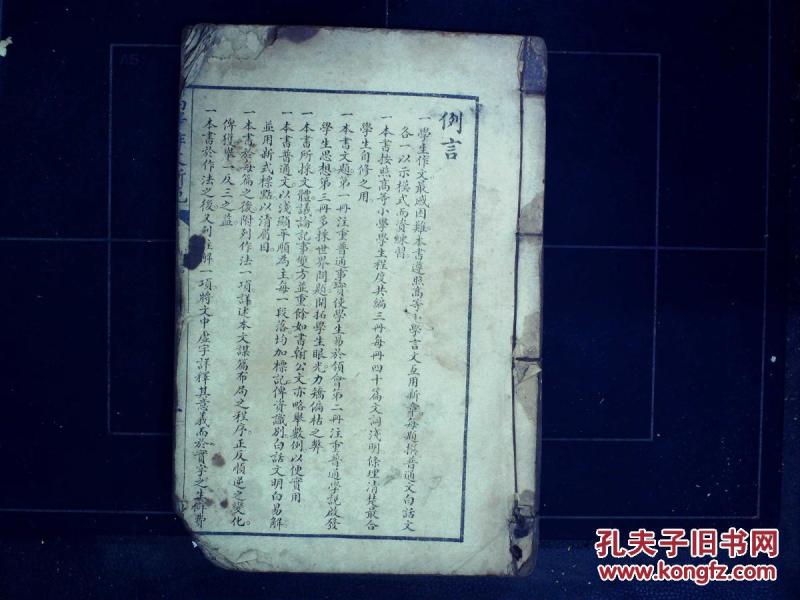 例言
一學生作文最感困難本書遵照高等小學言文互用新章每題撰普通文白話文
各一以示模式而資練習。
一本書按照高等小學學生程度共編三冊每冊四十篇文詞淺明條理清楚最合
學生自修之用。
一本書文題第一冊注重普通事實使學生易於領會第二冊注重普通學說啟發
學生思想第三冊多採世界問題開拓學生眼光力矯偏枯之弊
一本書所採文體議論記事雙方並重餘如書翰公文亦略舉數例以便實用
一本書普通文以淺顯平順為主每一段落均加標記俾資識別白話文明白易解
並用新式標點以清眉目。
一本書於每篇之後附列作法一項詳述本文謀篇布局之程序正反順逆之變化。
俾獲舉一反三之益
一本書於作法之後又列註解一項將文中虛字詳釋其意義而於實字之生僻費
孔夫子旧书网
www.kongfz.com